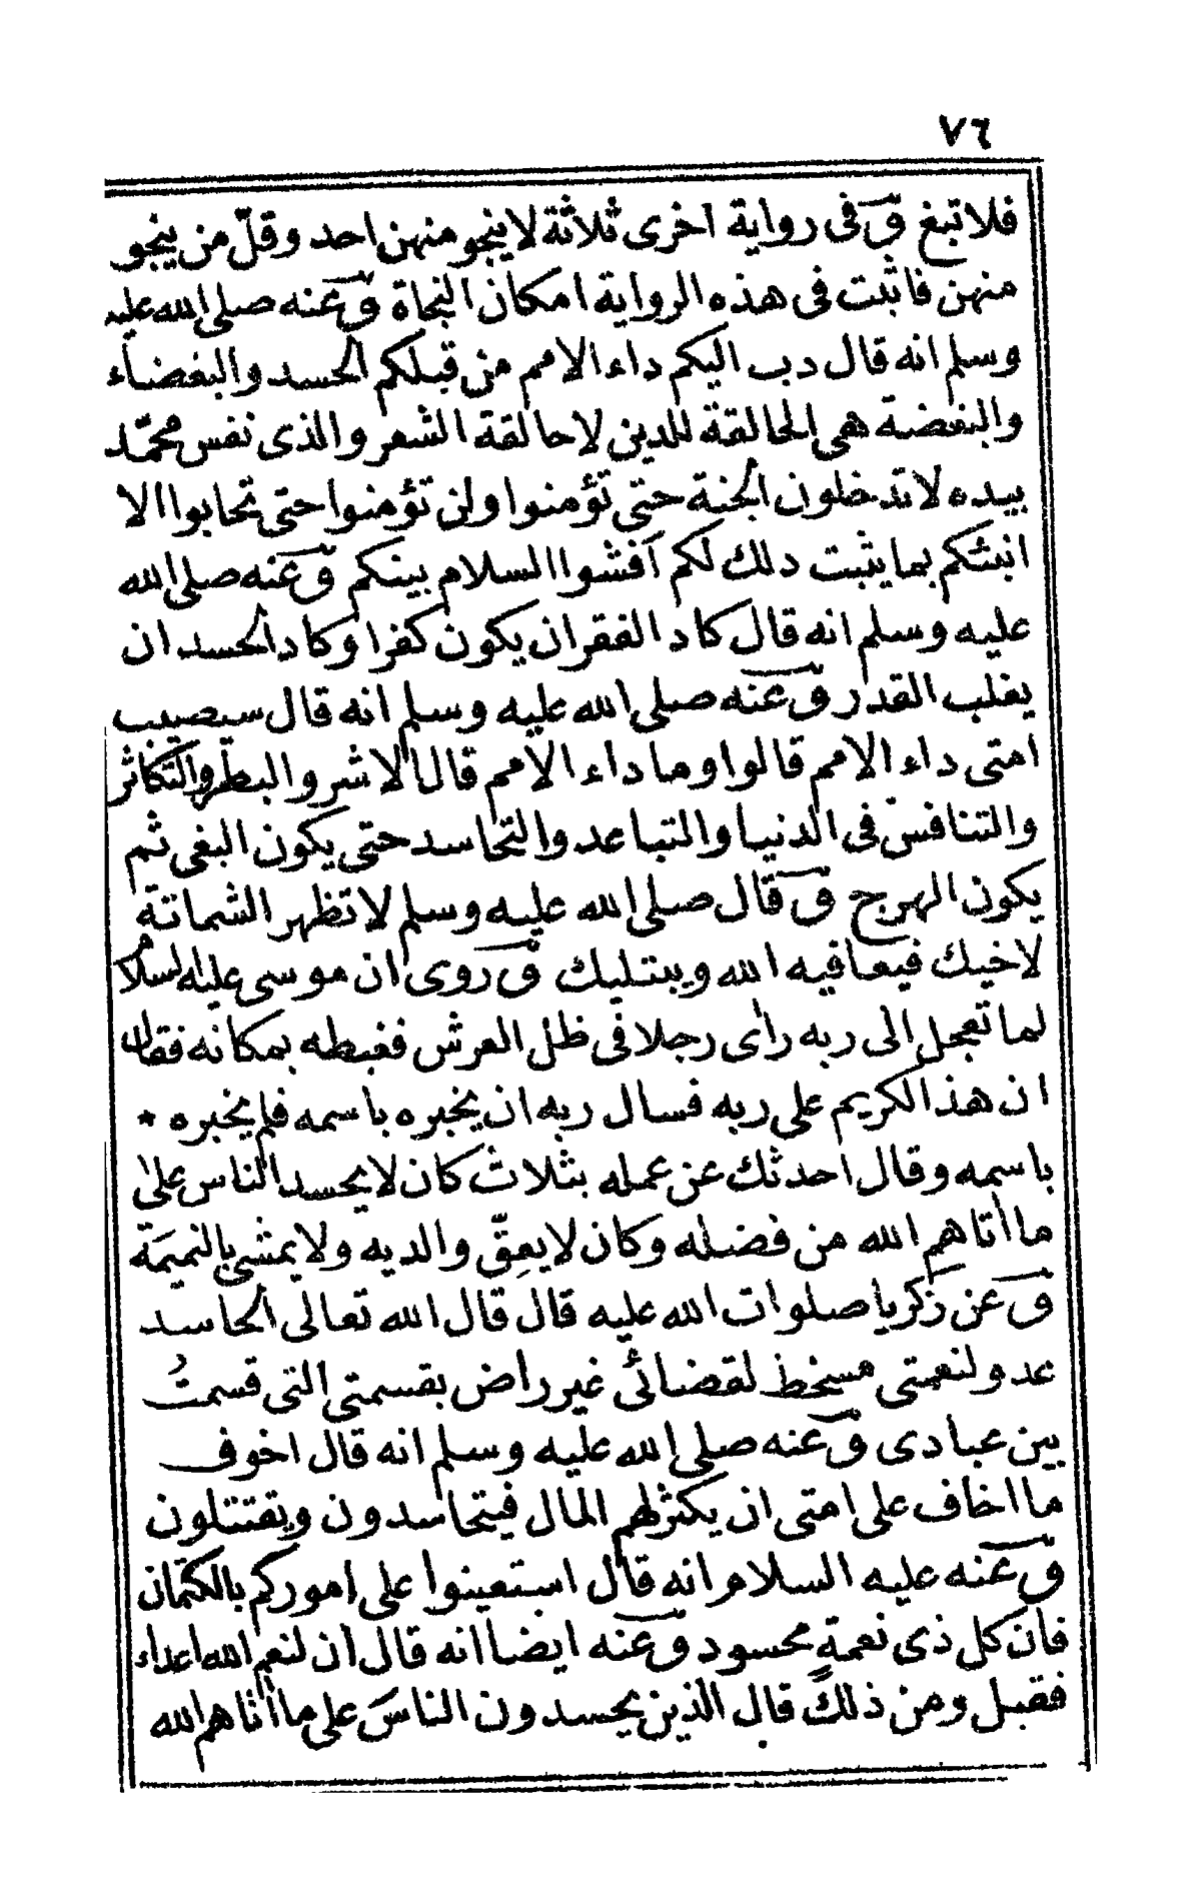 ٧٦
فلا تبغ وفى رواية اخرى ثلاثة لا ينجو منهن احد وقلّ من ينجو
منهن فاثبت فى هذه الرواية امكان النجاة وعنه صلى الله عليه
وسلم انه قال دب اليكم داء الامم من قبلكم الحسد والبغضاء
والبغضة هى الحالقة للدين لا حالقة الشعر والذى نفس محمّد
بيده لا تدخلون الجنة حتى تؤمنوا ولن تؤمنوا حتى تحابوا الا
انبئكم بما يثبت ذلك لكم افشوا السلام بينكم وعنه صلى الله
عليه وسلم انه قال كاد الفقر ان يكون كفرا وكاد الحسد ان
يغلب القدر وعنه صلى الله عليه وسلم انه قال سيصيب
امتى داء الامم قالوا وما داء الامم قال الاشر والبطر والتكاثر
والتنافس فى الدنيا والتباعد والتحاسد حتى يكون البغى ثم
يكون الهرج وقال صلى الله عليه وسلم لا تظهر الشماتة
لاخيك فيعافيه الله ويبتليك وروى ان موسى عليه السلام
لما تعجل الى ربه راى رجلا فى ظل العرش فغبطه بمكانه فقال
ان هذا لكريم على ربه فسال ربه ان يخبره باسمه فلم يخبره *
باسمه وقال احدثك عن عمله بثلاث كان لا يحسد الناس على
ما اتاهم الله من فضله وكان لا يعِقّ والديه ولا يمشى بالنميمَة
وعن زكريا صلوات الله عليه قال قال الله تعالى الحاسد
عدو لنعمتى مسخط لقضائى غير راض بقسمتى التى قسمتُ
بين عبادى وعنه صلى الله عليه وسلم انه قال اخوف
ما اخاف على امتى ان يكثر لهم المال فيتحاسدون ويقتتلون
وعنه عليه السلام انه قال استعينوا على اموركم بالكتمان
فان كل ذى نعمةٍ محسود وعنه ايضا انه قال ان لنعم الله اعداء
فقيل ومن ذلك قال الذين يحسدون الناسَ على ما اتاهم الله